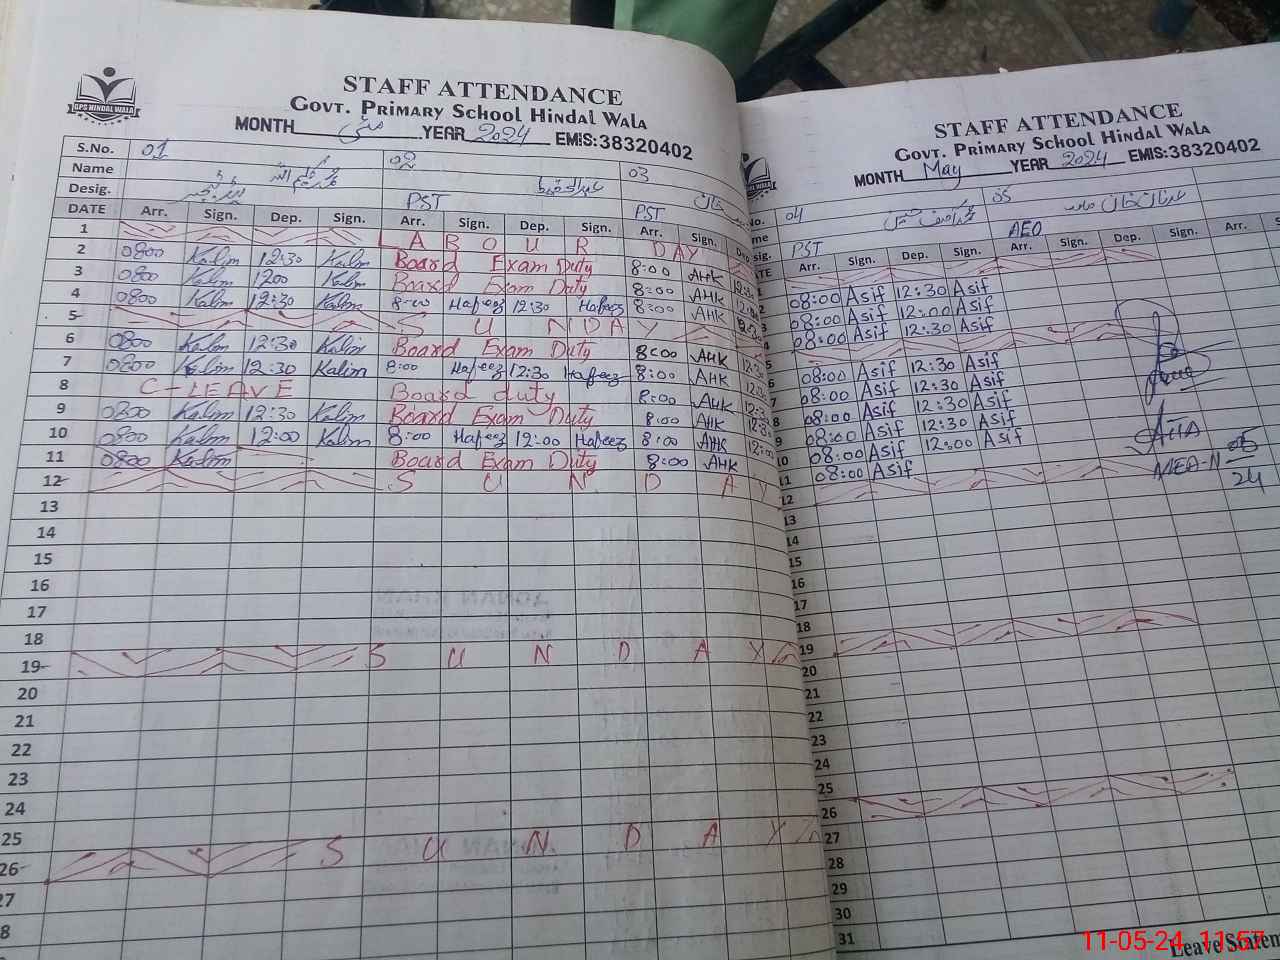 GPS HINDAL WALA
STAFF ATTENDANCE
GOVT. PRIMARY SCHOOL HINDAL WALA
MONTH مئی YEAR 2024 EMIS:38320402
S.No. 01 02 03
Name
Desig. PST PST
DATE Arr. Sign. Dep. Sign. Arr. Sign. Dep. Sign. Arr. Sign. Dep
1 LABOUR DAY
2 0800 Kalim 12:30 Kalim Board Exam Duty 8:00 AHK
3 0800 Kalim 1200 Kalim Board Exam Duty 8:00 AHK
4 0800 Kalim 12:30 Kalim 8:00 Hafeez 12:30 Hafeez 8:00 AHK
5 SUNDAY
6 0800 Kalim 12:30 Kalim Board Exam Duty 8:00 AHK
7 0800 Kalim 12:30 Kalim 8:00 Hafeez 12:30 Hafeez 8:00 AHK
8 C-LEAVE Board duty 8:00 AHK
9 0800 Kalim 12:30 Kalim Board Exam Duty 8:00 AHK
10 0800 Kalim 12:00 Kalim 8:00 Hafeez 12:00 Hafeez 8:00 AHK
11 0800 Kalim Board Exam Duty 8:00 AHK
12 SUNDAY
13
14
15
16
17
18
19 SUNDAY
20
21
22
23
24
25
26 SUNDAY
27
8
STAFF ATTENDANCE
GOVT. PRIMARY SCHOOL HINDAL WALA
MONTH May YEAR 2024 EMIS:38320402
No. 04 05
me
sig. PST AEO
TE Arr. Sign. Dep. Sign. Arr. Sign. Dep. Sign. Arr.
1
2 08:00 Asif 12:30 Asif
3 08:00 Asif 12:00 Asif
4 08:00 Asif 12:30 Asif
5
6 08:00 Asif 12:30 Asif
7 08:00 Asif 12:30 Asif
8 08:00 Asif 12:30 Asif
9 08:00 Asif 12:30 Asif
10 08:00 Asif 12:00 Asif
11 08:00 Asif
12
13
14
15
16
17
18
19
20
21
22
23
24
25
26
27
28
29
30
31
MEA-N 05
24
Leave Statem
11-05-24 11:57